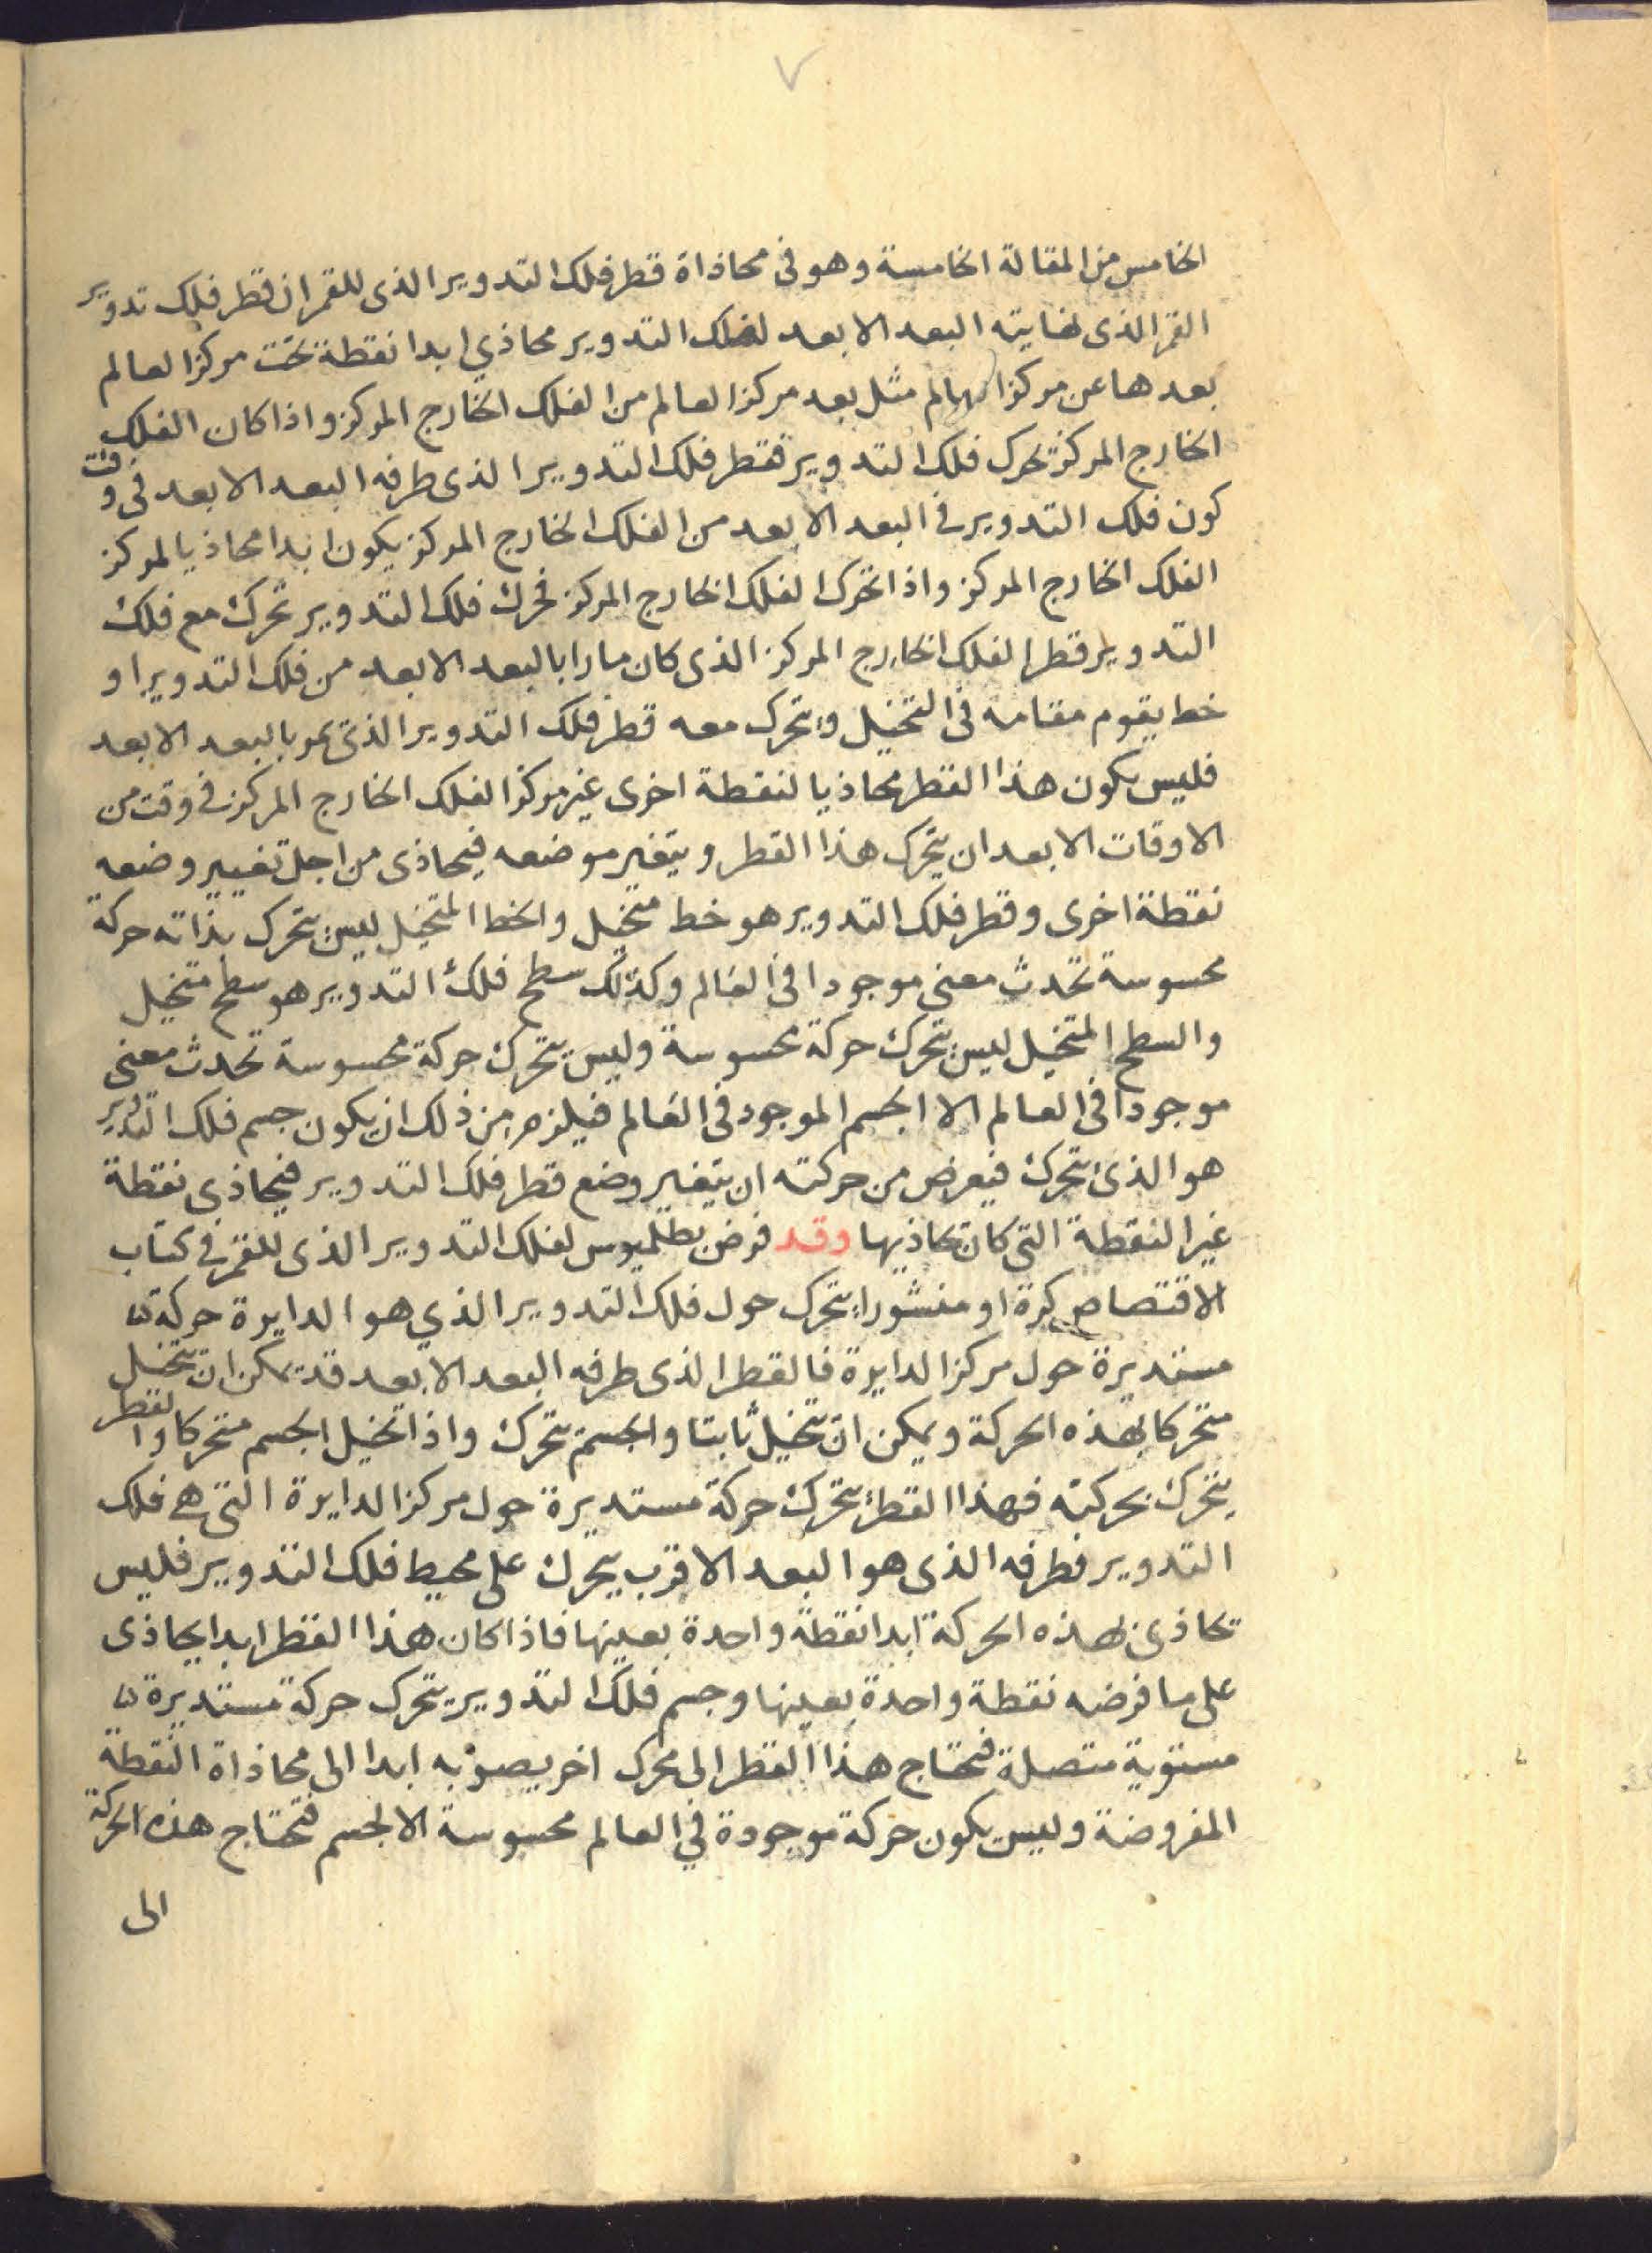 ٧
الخامس من المقالة الخامسة وهو فى محاذاة قطر فلك التدوير الذى للقمر ان قطر فلك تدوير
القمر الذى نهايته البعد الابعد لفلك التدوير محاذي ابدا نقطة تحت مركز العالم
بعدها عن مركز العالم مثل بعد مركز العالم من الفلك الخارج المركز واذا كان الفلك
الخارج المركز يحرك فلك التدوير فقطر فلك التدوير الذى طرفه البعد الابعد فى وقت
كون فلك التدوير فى البعد الابعد من الفلك الخارج المركز يكون ابدا محاذيا لمركز
الفلك الخارج المركز واذا تحرك الفلك الخارج المركز فحرك فلك التدوير تحرك مع فلك
التدوير قطر الفلك الخارج المركز الذى كان مارا بالبعد الابعد من فلك التدوير او
خط يقوم مقامه فى التخيل ويتحرك معه قطر فلك التدوير الذى يمر بالبعد الابعد
فليس يكون هذا القطر محاذيا لنقطة اخرى غير مركز الفلك الخارج المركز فى وقت من
الاوقات الا بعد ان يتحرك هذا القطر ويتغير موضعه فيحاذى من اجل تغيير وضعه
نقطة اخرى وقطر فلك التدوير هو خط متخيل والخط المتخيل ليس يتحرك بذاته حركة
محسوسة تحدث معنى موجودا فى العالم وكذلك سطح فلك التدوير هو سطح متخيل
والسطح المتخيل ليس يتحرك حركة محسوسة وليس يتحرك حركة محسوسة تحدث معنى
موجودا فى العالم الا الجسم الموجود فى العالم فيلزم من ذلك ان يكون جسم فلك التدوير
هو الذى يتحرك فيعرض من حركته ان يتغير وضع قطر فلك التدوير فيحاذى نقطة
غير النقطة التى كان يحاذيها وقد فرض بطلميوس لفلك التدوير الذى للقمر فى كتاب
الاقتصاص كرة او منشورا يتحرك حول فلك التدوير الذي هو الدايرة حركة
مستديرة حول مركز الدايرة فالقطر الذى طرفه البعد الابعد قد يمكن ان يتخيل
متحركا بهذه الحركة ويمكن ان يتخيل ثابتا والجسم يتحرك واذا تخيل الجسم متحركا والقطر
يتحرك بحركته فهذا القطر يتحرك حركة مستديرة حول مركز الدايرة التى هى فلك
التدوير فطرفه الذى هو البعد الاقرب يتحرك على محيط فلك التدوير فليس
تحاذى بهذه الحركة ابدا نقطة واحدة بعينها فاذا كان هذا القطر ابدا يحاذى
على ما فرضه نقطة واحدة بعينها وجسم فلك التدوير يتحرك حركة مستديرة
مستوية متصلة فيحتاج هذا القطر الى محرك اخر يصير به ابدا الى محاذاة النقطة
المفروضة وليس يكون حركة موجودة في العالم محسوسة الا لجسم فتحتاج هذه الحركة
الى